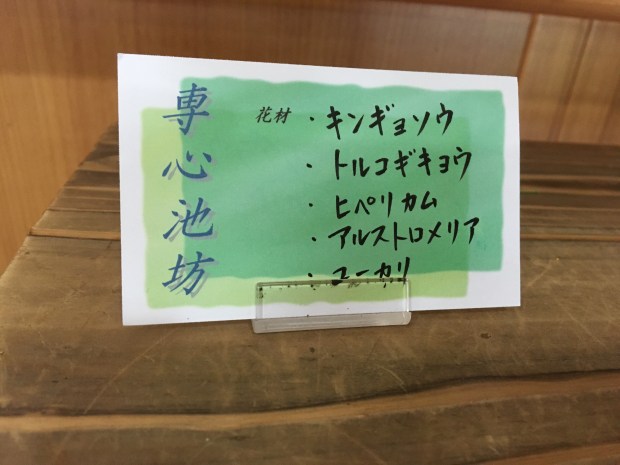 専心池坊
花材 ・キンギョソウ
・トルコギキョウ
・ヒペリカム
・アルストロメリア
・ユーカリ